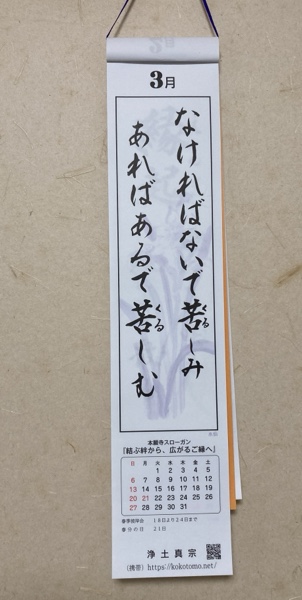 3月
なければないで苦しみ
くる
あればあるで苦しむ
くる
本願寺スローガン
「結ぶ絆から、広がるご縁へ」
日 月 火 水 木 金 土
1 2 3 4 5
6 7 8 9 10 11 12
13 14 15 16 17 18 19
20 21 22 23 24 25 26
27 28 29 30 31
春季彼岸会 18日より24日まで
春分の日 21日
浄土真宗
(携帯) https://kokotomo.net/